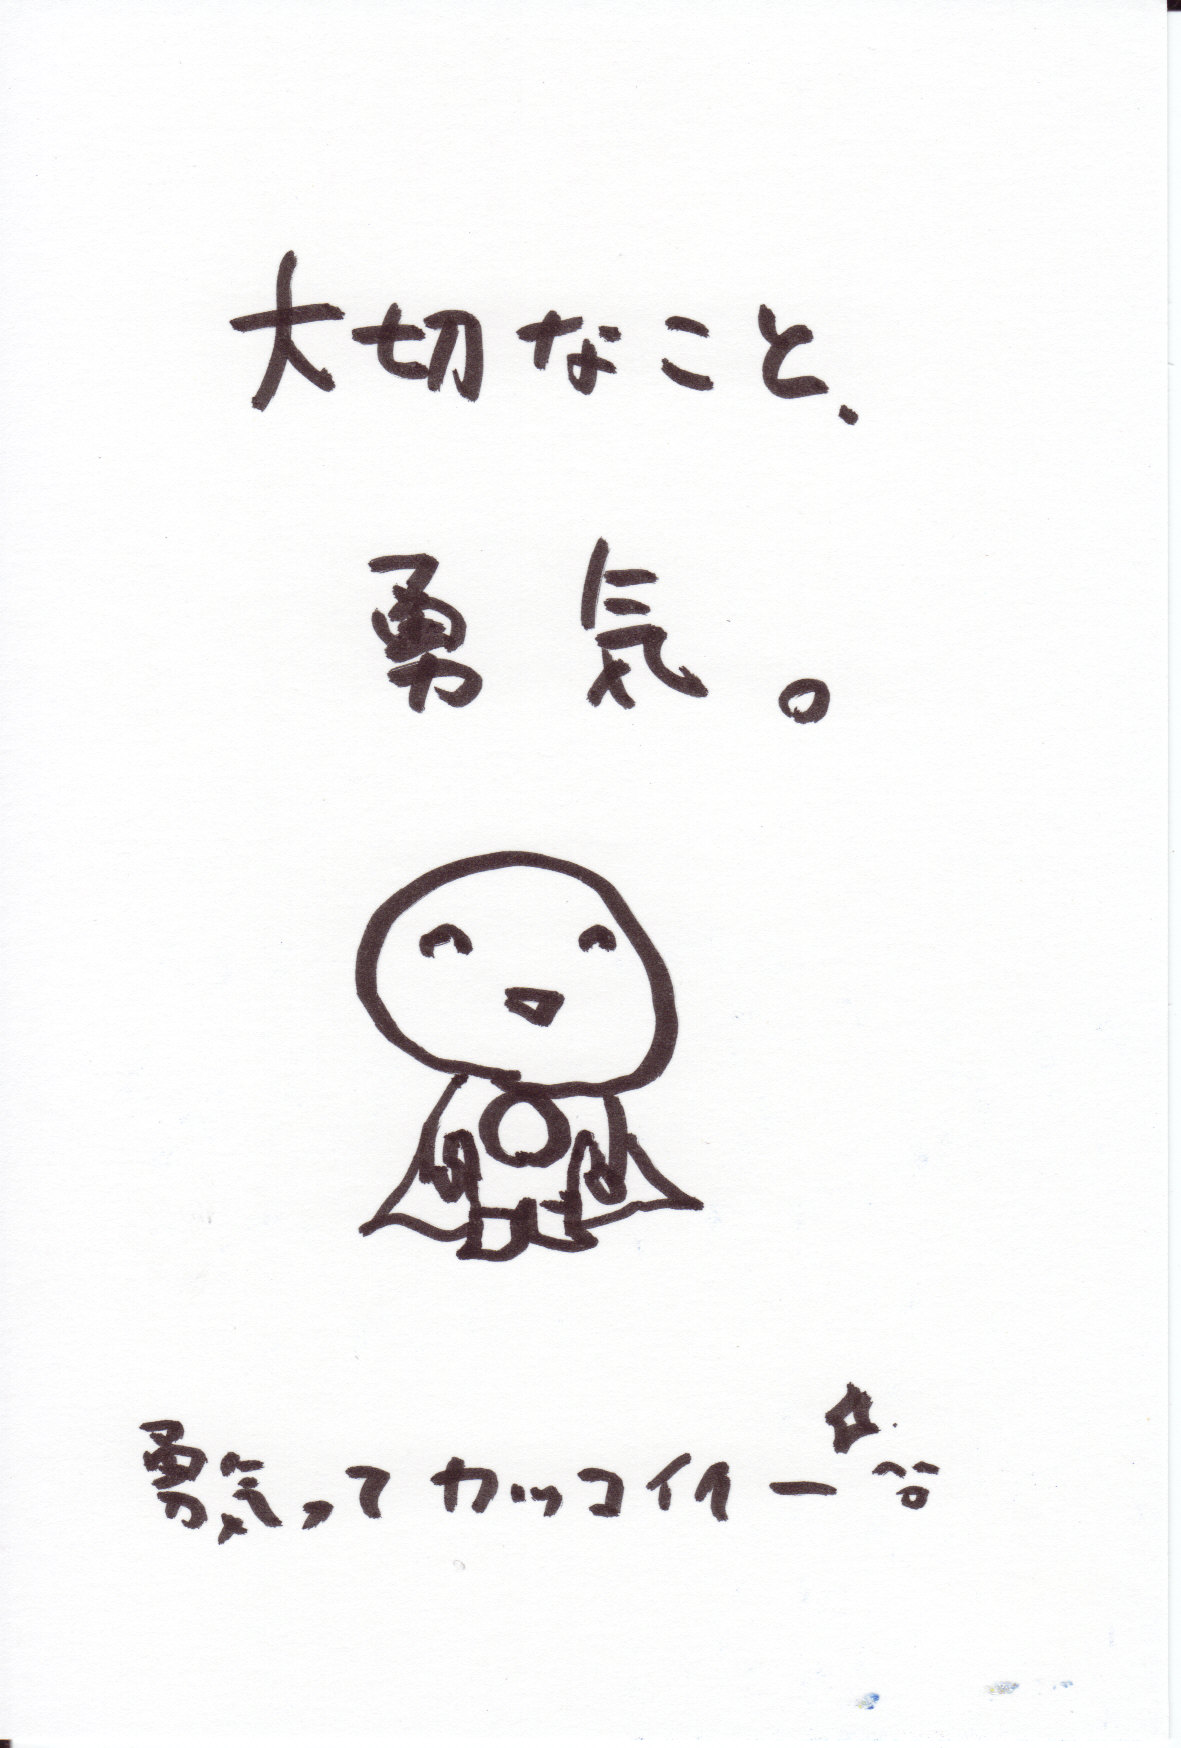 大切なこと、
勇気。
勇気ってカッコイイー